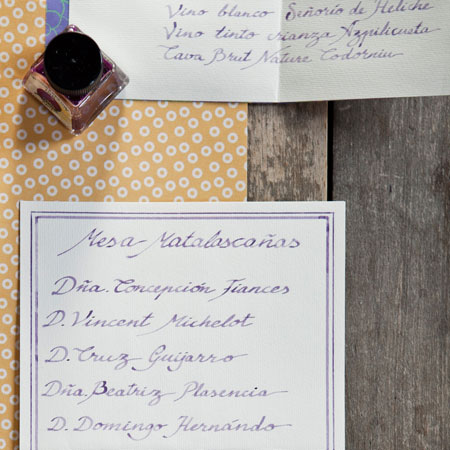 Vino blanco Señorio de Heliche
Vino tinto crianza Azpilicueta
Cava Brut Nature Codorniu
Mesa Matalascañas
Dña. Concepción Fiances
D. Vincent Michelot
D. Cruz Guijarro
Dña. Beatriz Plasencia
D. Domingo Hernándo